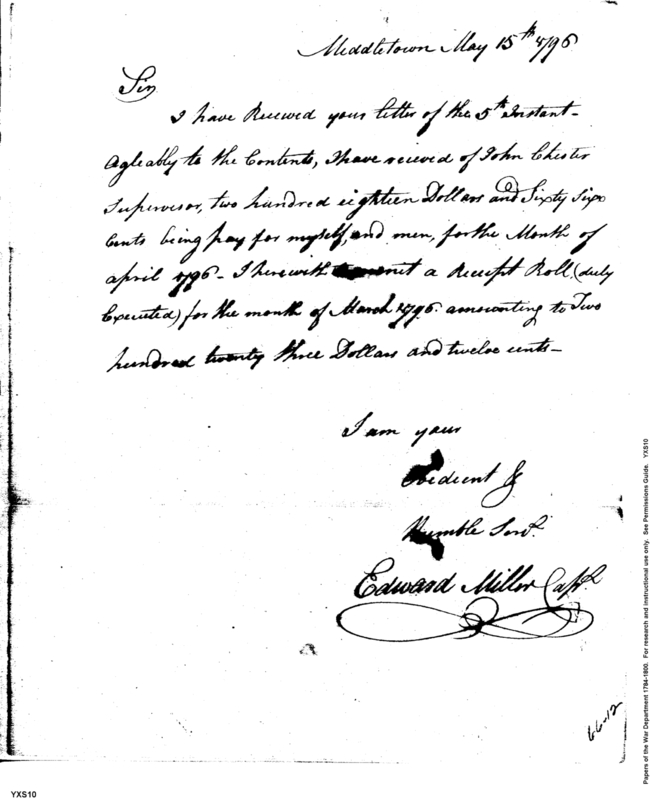 Middletown May 15th 1796
Sir
I have Received your letter of the 5th Instant-
Agleably to the Contents, I have recieved of John Chester
Supervisor, two hundred eighteen Dollars and Sixty Six
Cents being pay for myself, and men, for the Month of
april 1796 - I herewith a Receipt Roll (duly
Executed) for the month of March 1796. amounting to Two
hundred twenty three Dollars and twelve cents-
I am your
Obedient &
Humble Servt.
Edward Miller Capt
66-12
YXS10
Papers of the War Department 1784-1800. For research and instructional use only. See Permissions Guide. YXS10